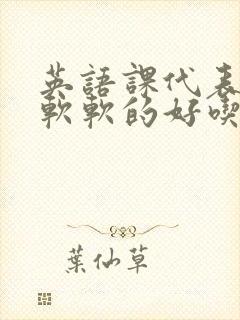 英語課代表
軟軟的好喫
葉仙草